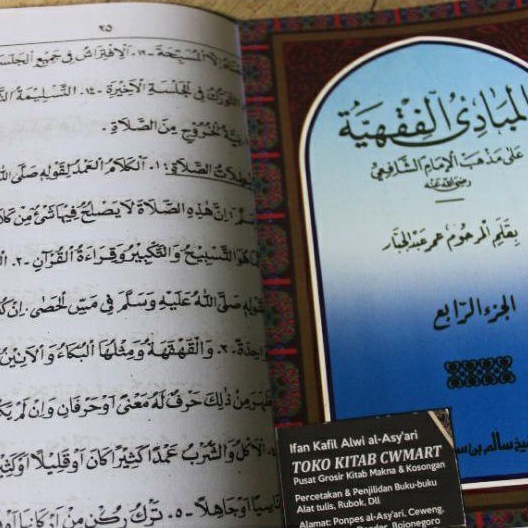 ٢٥
١٢. الِافْتِرَاشُ فِى جَمِيْعِ الْجَلَسَ
التَّوَرُّكُ فِى الْجَلْسَةِ الْأَخِيْرَةِ. ١٤. التَّسْلِيْمَةُ
نِيَّةُ الْخُرُوْجِ مِنَ الصَّلَاةِ.
مُبْطِلَاتُ الصَّلَاةِ: ١. اَلْكَلَامُ الْعَمْدُ لِقَوْلِهِ صَلَّى اللهُ
وَسَلَّمَ: اِنَّ هٰذِهِ الصَّلَاةَ لَا يَصْلُحُ فِيْهَا شَىْءٌ مِنْ كَلَا
هُوَ التَّسْبِيْحُ وَالتَّكْبِيْرُ وَقِرَاءَةُ الْقُرْآنِ. ٢.
قَوْلِهِ صَلَّى اللهُ عَلَيْهِ وَسَلَّمَ فِى مَسِّ الْحَصٰى. اِنْ كُ
وَاحِدَةً. ٣. وَالْقَهْقَهَةُ وَمِثْلُهَا الْبُكَاءُ وَالْاَنِيْنُ
ظَهَرَ مِنْ ذٰلِكَ حَرْفٌ لَهُ مَعْنًى اَوْ حَرْفَانِ وَاِنْ لَمْ يَكُ
٤. اَلْاَكْلُ وَالشُّرْبُ عَمْدًا كَثِيْرًا كَانَ اَوْ قَلِيْلًا اَوْ كَثِيْ
نَاسِيًا اَوْ جَاهِلًا. ٥. تَرْكُ رُكْنٍ مِنْ اَرْكَانِهَا اَوْ
المبادئ الفقهية
على مذهب الإمام الشافعى
رضى الله عنه
بقلم المرحوم عمر عبد الجبار
الجزء الرابع
سالم بن س
Ifan Kafil Alwi al-Asy'ari
TOKO KITAB CWMART
Pusat Grosir Kitab Makna & Kosongan
Percetakan & Penjilidan Buku-buku
Alat tulis, Rubok, Dll
Alamat: Ponpes al-Asy'ari, Ceweng,